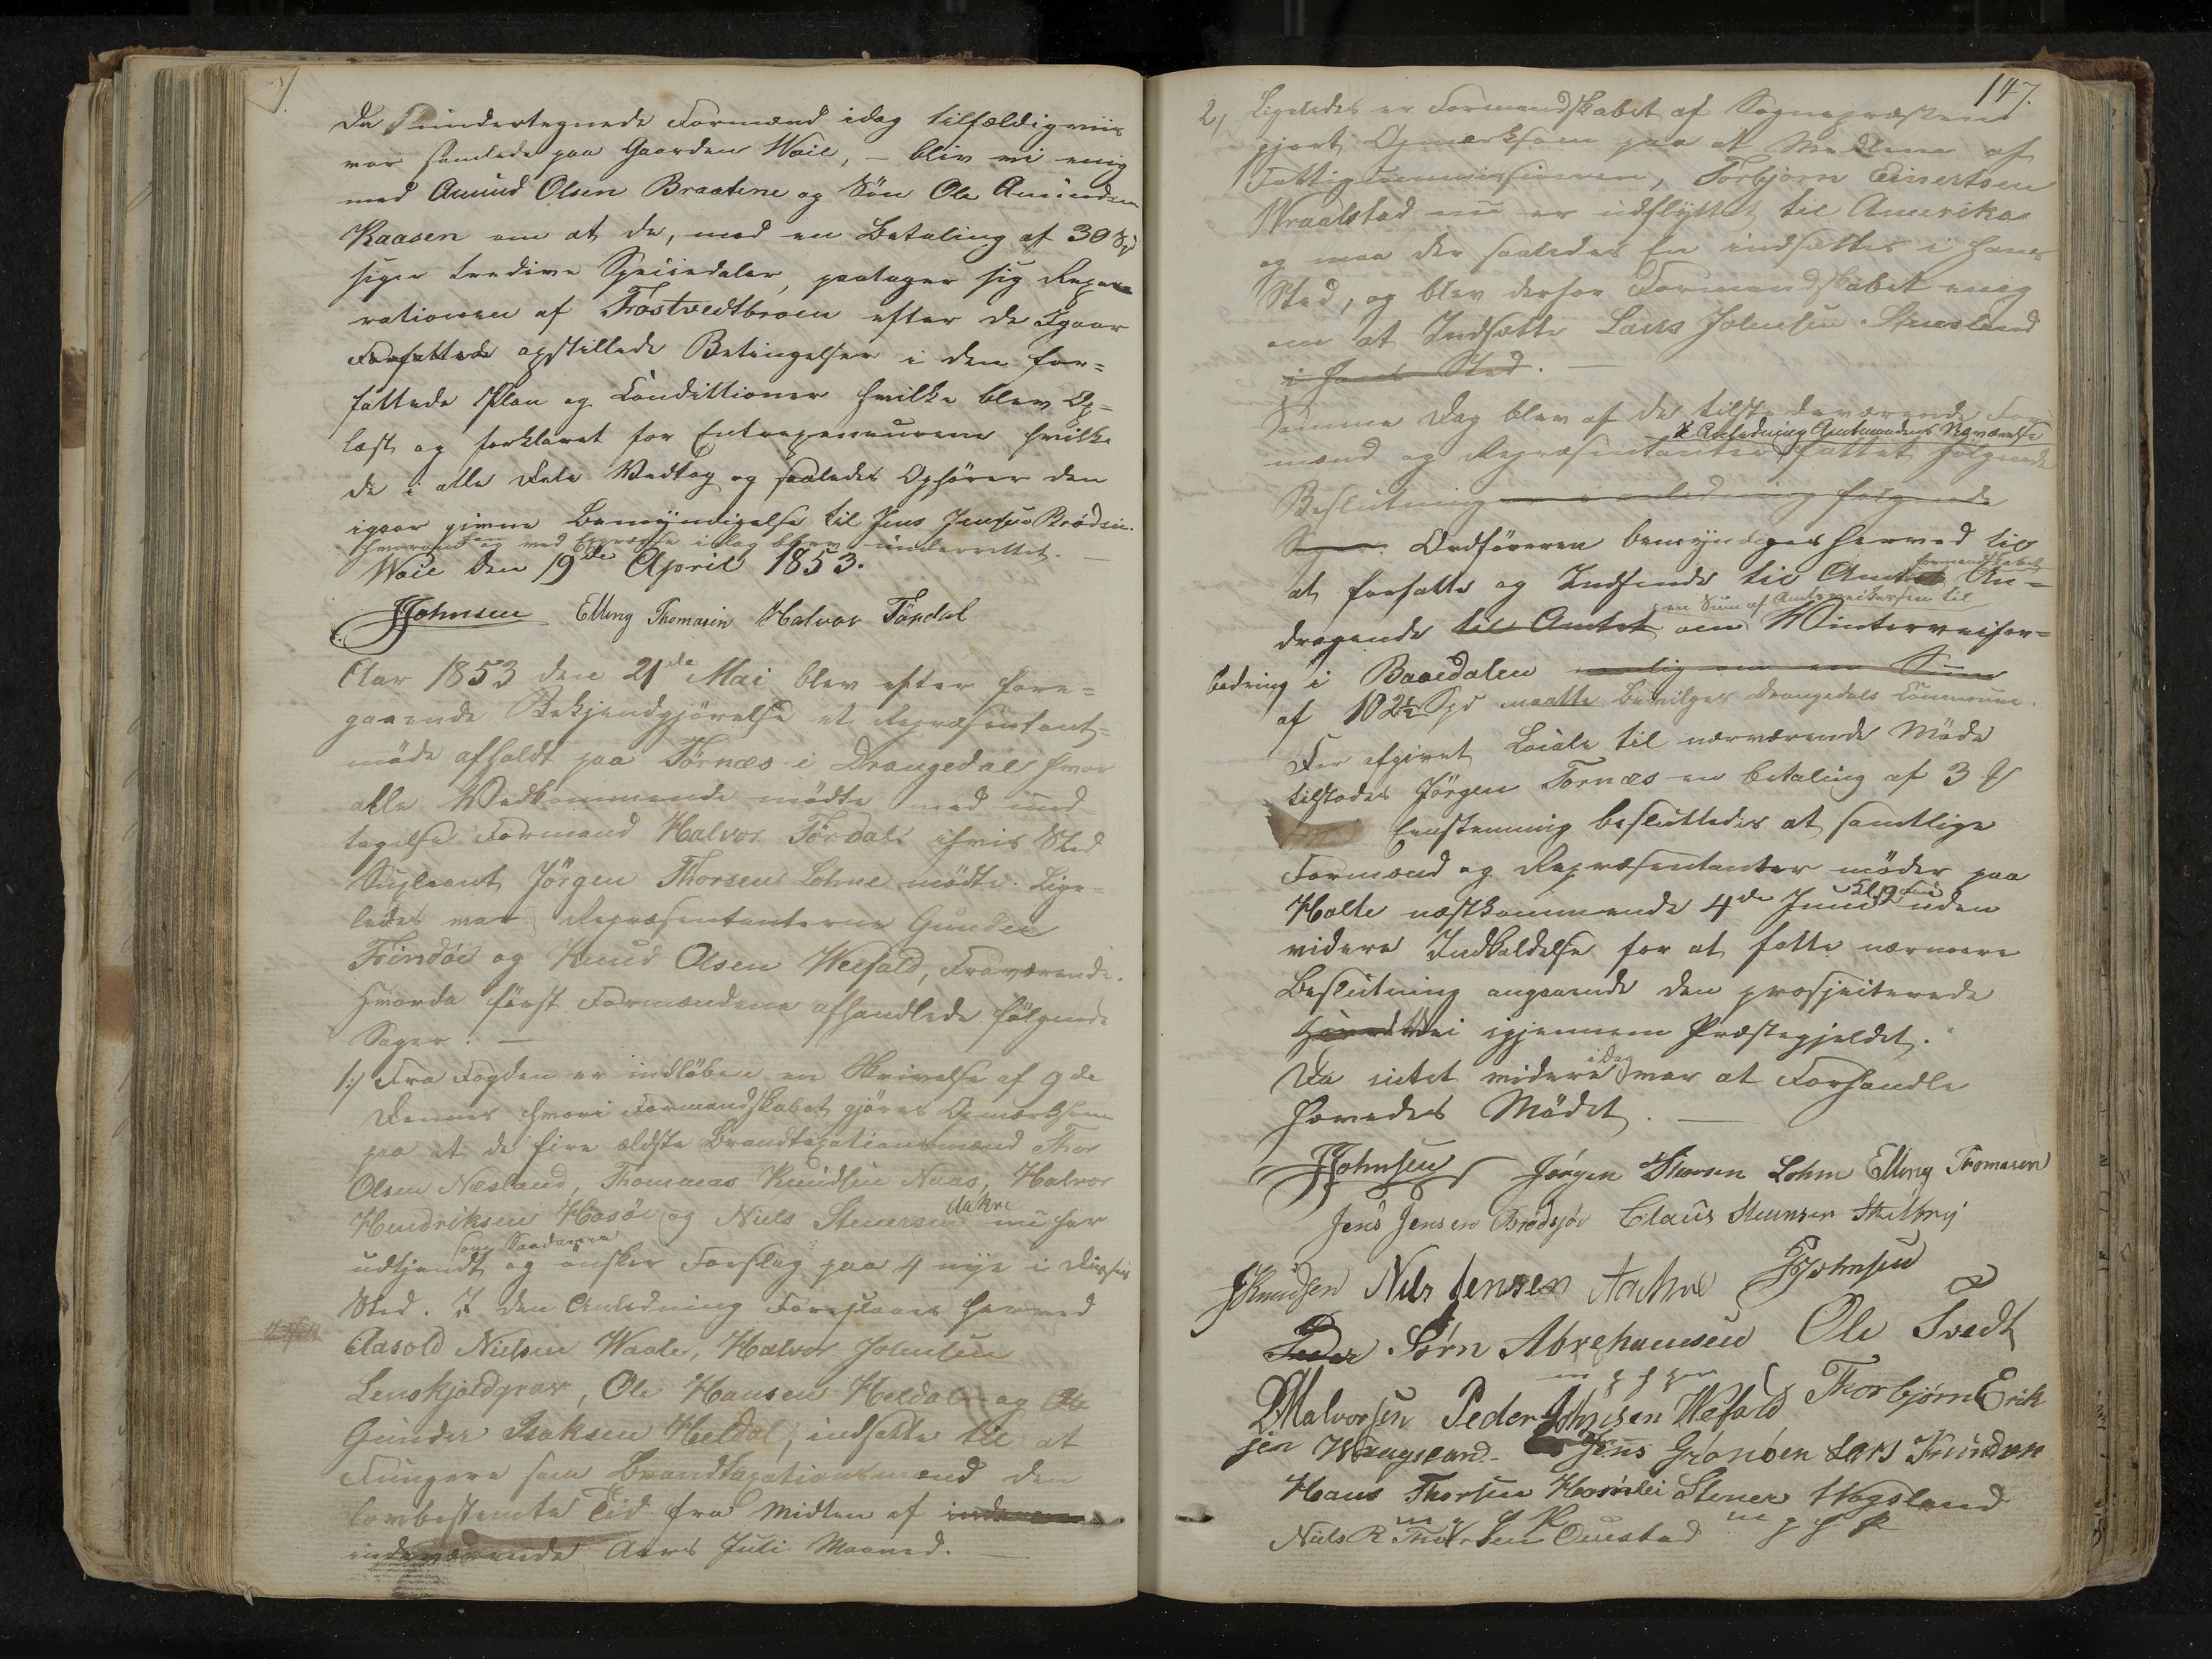 Da undertegnede Formænd idag tilfældigviis
var samlede paa Gaarden Woie, – blev vi enig
med Amund Olsen Braatene og Søn Ole Amundsen
Kaasen om at de, med en Betaling af 30 Spd
siger tredive Speciedaler, paatager sig Repa
rationen af Tostvedtbroen efter de Igaar
Forfattede opstillede Betingelser i den for=
fattede Plan og Conditioner hvilke blev Op=
læst og forklaret for Entrepeneurerne hvilke
de i alle Dele Vedtog og saaledes Ophører den
igaar givne Bemyndigelse til Jens Jensen Brødsiø.
hvorom han ved Expresse idag blev underrettet. –
Woie den 19de April 1853.
JJohnsen Elling Thomasen Halvor Tørdal
Aar 1853 den 21de Mai blev efter fore=
gaaende Bekjendgjørelse et Repræsentant=
møde afholdt paa Tørnæs i Drangedal hvor
alle Vedkommende mødte med und
tagelse Formand Halvor Tørdal i hvis Sted
Supleant Jörgen Thorsen Lohne mødte. Lige=
ledes var Repræsentanterne Gunder
og Knud Olsen Wefald, Fraværende.
Hvorda først Formændene afhandlede følgende
Sager. –
1:/ Fra Fogden er indløben en Skrivelse af 9de
Dennes hvori Formandskabet gjøres Opmærksom
paa at de fire ældste Brandtaxationsmænd Thor
Olsen Næsland, Thommas Knudsen Naas, Halvor
Hendriksen Hosøe og Niels Stenersen Aakre nu har
udtjendt som Saadanne og ønsker Forslag paa 4 nye i Disses
Sted. I den Anledning Foreslaaes herved
Aasold Nielsen Waale, Halvor Johnsen
Lenskjoldgrav, Ole Hansen Heldal og
Gunder Isaksen Heldal, indsatte til at
Fungere som Brandtaxationsmænd den
lovbestemte Tid fra Midten af
indeværende Aars Juli Maaned. –
147.
2, Ligeledes er Formandskabet af Sognepræsten
gjort Opmærksom paa at Medlem af
Fattigcommissionen, Torbjørn Einertsen
Wraalstad nu er udflyttet til Amerika
og maa der saaledes En indsættes i hans
Sted, og blev derfor Formandskabet enig
om at Indsætte Lars Johnsen Stuesland
i hans Sted. –
Samme Dag blev af de tilstedeværende For
mænd og Repræsentanter i Anledning Amtmandens Nærværelse fattet følgende
Beslutning i anledning følgende
Ordføreren bemyndiges herved til
at forfatte og Indsende til Amtet Formandskabets An=
dragende til Amtet om en Sum af Amtsveikassen til Winterveisfor=
bedring i Baaedalen nemlig om en Sum
af 102½ Spd maatte bevilges Drangedals Commune.
For afgivet Locale til nærværende Møde
tilstodes Jørgen Tornæs en betaling af 3
Eenstemmig besluttedes at samtlige
Formænd og Repræsentanter møder paa
Holte næstkommende 4de Juni Kl 9 uden
videre Indkaldelse for at fatte nærmere
Beslutning angaaende den projecterede
Hovedvei igjennem Præstegjeldet.
Da intet videre idag var at Forhandle
hævedes Mødet. –
JJohnsen Jørgen Thorsen Lohne Elling Thomasen
Jens Jensen Brødsjøe Claus Steensen
JKnudsen Nils Jensen Aakre JJohnsen
Peder Sørn Abrehamsen Ole Tvedt
DHalvorsen Peder Johnsen Wefald Thorbjørn Erik
sen Waagsland Jens Grønøen Lars Knudsen
Hans Thorsen Stener Wogsland
Niels R Thorsen Ouestad m p f p